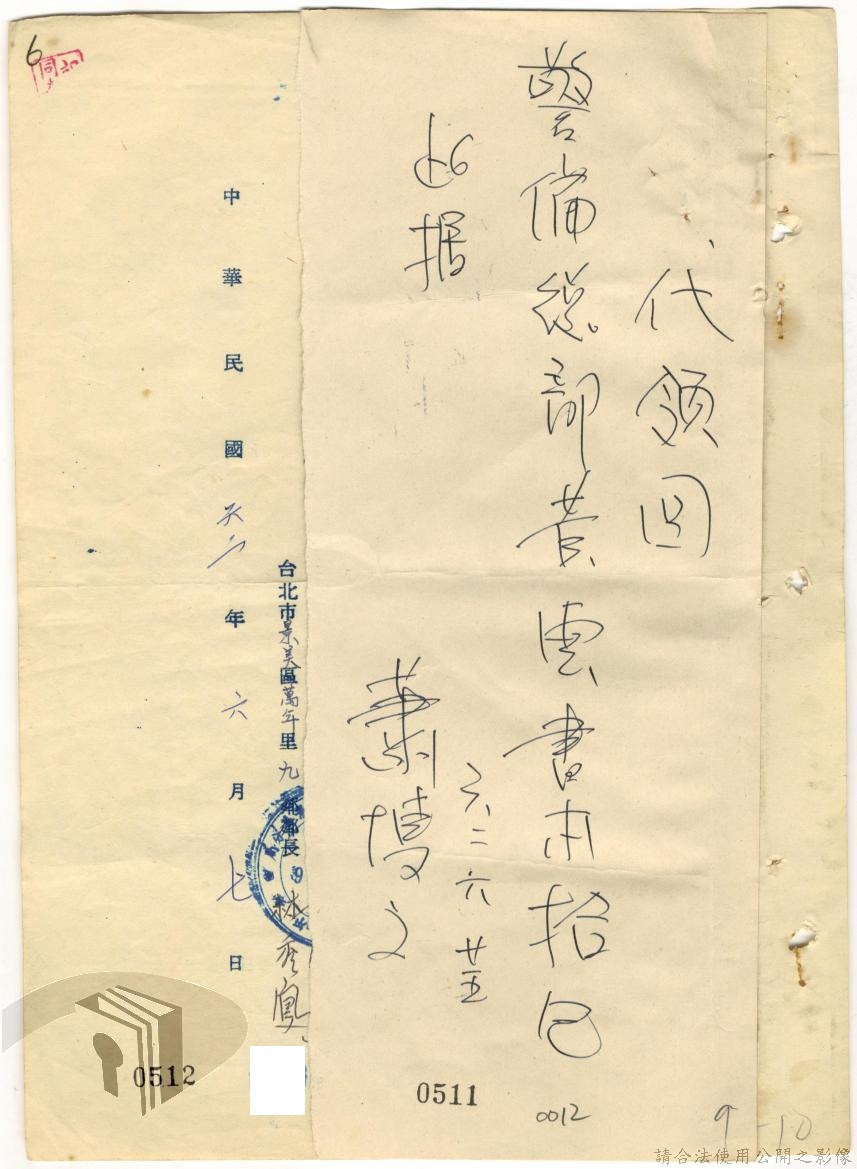 代領回
警備總部黃書本拾包
此据
六二六廿五
蕭博文
台北市景美區萬年里九鄰鄰長林秀鳳
中華民國六二年六月七日
6
0512
0511
0012
9-10
請合法使用公開之影像